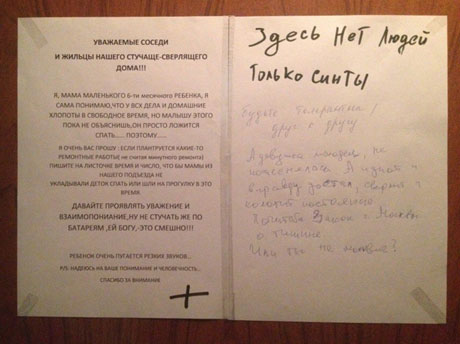 УВАЖАЕМЫЕ СОСЕДИ
И ЖИЛЬЦЫ НАШЕГО СТУЧАЩЕ-СВЕРЛЯЩЕГО
ДОМА!!!
Я, МАМА МАЛЕНЬКОГО 6-ти МЕСЯЧНОГО РЕБЕНКА, Я
САМА ПОНИМАЮ,ЧТО У ВСХ ДЕЛА И ДОМАШНИЕ
ХЛОПОТЫ В СВОБОДНОЕ ВРЕМЯ, НО МАЛЫШУ ЭТОГО
ПОКА НЕ ОБЪЯСНИШЬ,ОН ПРОСТО ЛОЖИТСЯ
СПАТЬ..... ПОЭТОМУ.....
Я ОЧЕНЬ ВАС ПРОШУ : ЕСЛИ ПЛАНТРУЕТСЯ КАКИЕ-ТО
РЕМОНТНЫЕ РАБОТЫ( не считая минутного ремонта)
ПИШИТЕ НА ЛИСТОЧКЕ ВРЕМЯ И ЧИСЛО, ЧТО БЫ МАМЫ ИЗ
НАШЕГО ПОДЪЕЗДА НЕ
УКЛАДЫВАЛИ ДЕТОК СПАТЬ ИЛИ ШЛИ НА ПРОГУЛКУ В ЭТО
ВРЕМЯ
ДАВАЙТЕ ПРОЯВЛЯТЬ УВАЖЕНИЕ И
ВЗАИМОПОНИАНИЕ,НУ НЕ СТУЧАТЬ ЖЕ ПО
БАТАРЕЯМ ,ЕЙ БОГУ,-ЭТО СМЕШНО!!!
РЕБЕНОК ОЧЕНЬ ПУГАЕТСЯ РЕЗКИХ ЗВУКОВ...
P/S: НАДЕЮСЬ НА ВАШЕ ПОНИМАНИЕ И ЧЕЛОВЕЧНОСТЬ...
СПАСИБО ЗА ВНИМАНИЕ
+
Здесь НЕТ Людей
ТОЛЬКО СИНТЫ
Будьте
друг с другу
А девушка молодец, не
А
постоянно
Закон г. Москвы
о тишине
Или ты не москвич?